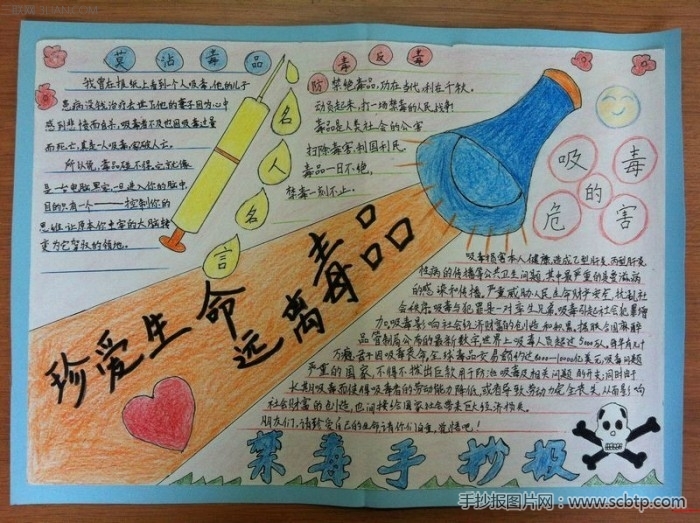 三联网 3LIAN.COM
莫沾毒品
我曾在报纸上看到一个人吸毒,他的儿子
患病没钱治疗去世
而死亡,真是一人吸毒,家破人亡。
所以说,毒品碰不得,它就像
是一台电脑黑客,一旦进入你的脑中,
目的只有一个——控制你的
思维,让原本你主宰的大脑转
变为它掌权的领地。
名人名言
防毒反毒
禁绝毒品,功在当代,利在千秋。
动员起来,打一场禁毒的人民战争
毒品是人类社会的公害
扫除毒害,利国利民。
毒品一日不绝,
禁毒一刻不止。
吸毒的危害
珍爱生命
远离毒品
吸毒损害本人健康,造成乙型肝炎、丙型肝炎
性病的传播等公共卫生问题,其中最严重的是要滋病
的感染和传播。严重威胁人民生命财产安全,扰乱社
会秩序。吸毒与犯罪是一对孪生兄弟,吸毒引起社会犯罪增
加。吸毒影响社会经济财富的创造和积累。据联合国麻醉
品管制局公布的最新数字,世界上吸毒人员超过5000万人,每年有几十
万瘾君子因吸毒丧命,全球毒品交易额约达8000—10000亿美元,吸毒问题
严重的国家,不得不拨出巨款用于防治吸毒及相关问题的开支;同时由于
长期吸毒而使得吸毒者的劳动能力降低,或者导致劳动力完全丧失,从而影响
社会财富的创造,也间接给国家社会带来巨大经济损失。
朋友们,请珍爱自己的生命
禁毒手抄报
手抄报图片网:www.scbtp.com